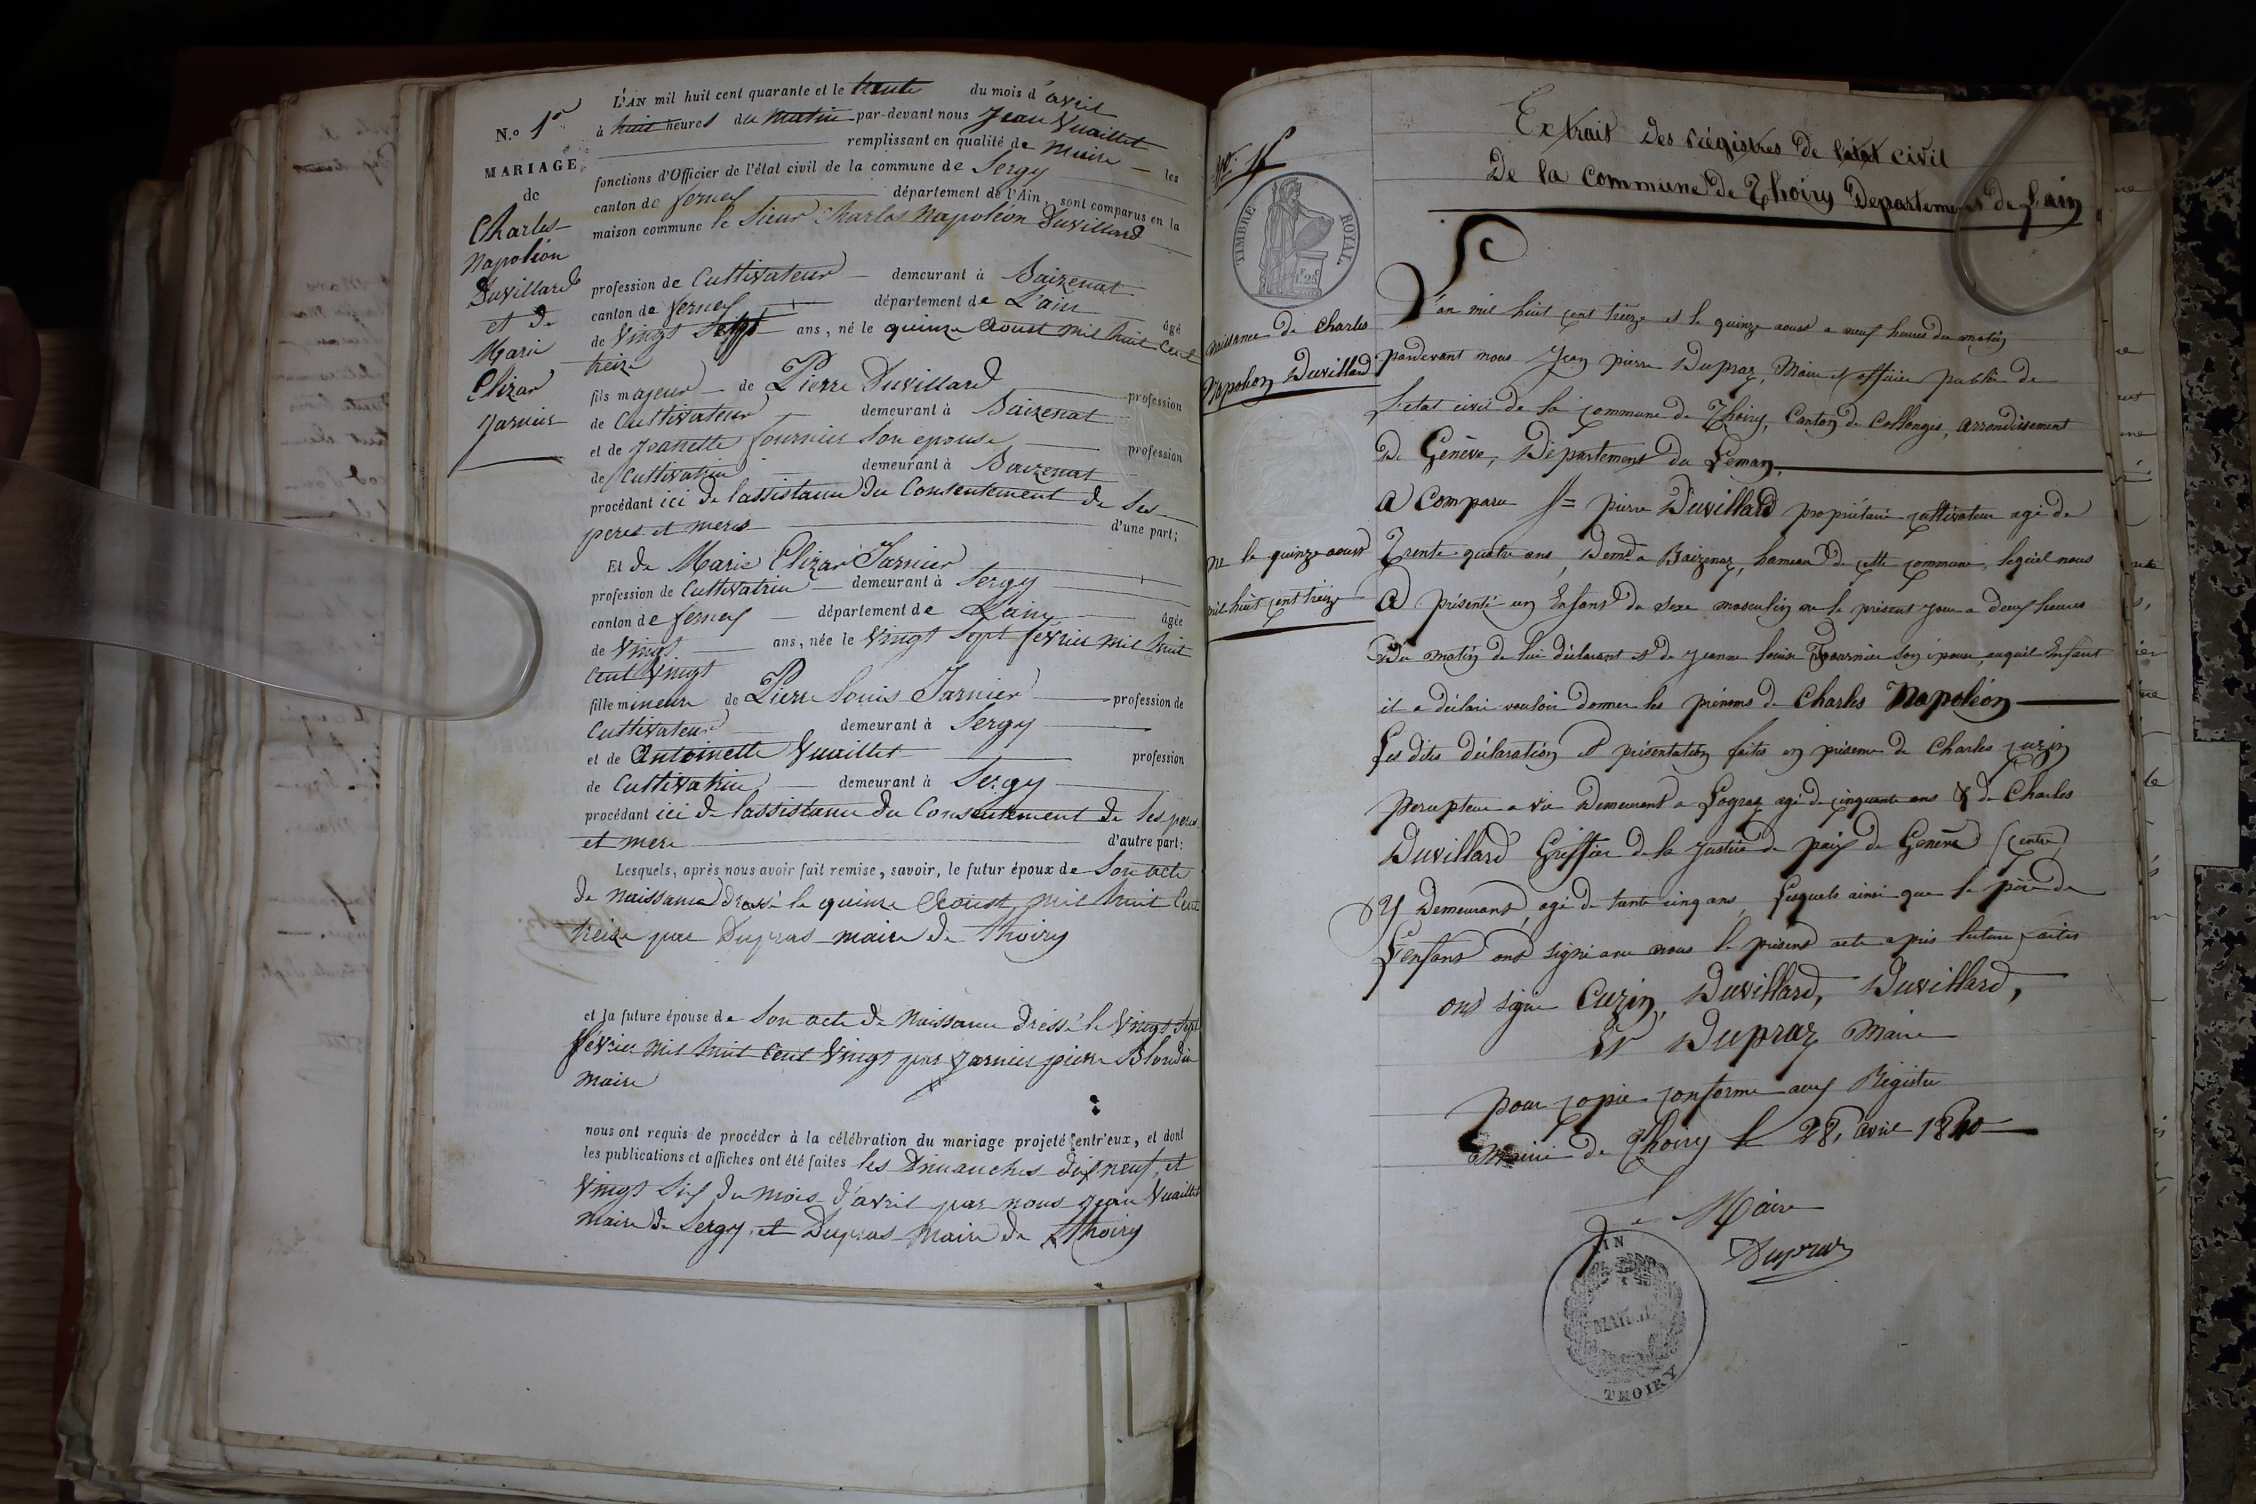 N.o 1er
MARIAGE
de
Charles
Napoléon
Duvillard
et de
Marie
Elizar
Jarnier
L'AN mil huit cent quarante et le trente du mois d'avril
à huit heures du matin par-devant nous Jean Vuaillet
remplissant en qualité de maire les
fonctions d'Officier de l'état civil de la commune de Sergy
canton de ferney département de l'Ain, sont comparus en la
maison commune le Sieur Charles Napoléon Duvillard
profession de Cultivateur demeurant à Baizenat
canton de ferney département de L'ain âgé
de Vingt Sept ans, né le quinze Aoust mil huit Cent
treize
fils majeur de Pierre Duvillard profession
de Cultivateur demeurant à Baizenat
et de Jeanette fournier Son epouse profession
de Cultivatrice demeurant à Baizenat
procédant ici de lassistance du Consentement de Ses
peres et meres d'une part;
Et de Marie Elizar Jarnier
profession de Cultivatrice demeurant à Sergy
canton de ferney département de L'ain âgée
de Vingt ans, née le Vingt Sept février mil huit
Cent Vingt
fille mineure de Pierre Louis Jarnier profession de
Cultivateur demeurant à Sergy
et de Antoinette Vuaillet profession
de Cultivatrice demeurant à Sergy
procédant ici de lassistance du Consentement de ses peres
et mere d'autre part:
Lesquels, après nous avoir fait remise, savoir, le futur époux de Son acte
de Naissance dressé le quinze Aoust mil huit Cent
treize par Dupras maire de thoiry
et la future épouse de Son acte de Naissance dressé le Vingt Sept
février mil huit Cent Vingt par Jarnier pierre Blondin
maire
nous ont requis de procéder à la célébration du mariage projeté entr'eux, et dont
les publications et affiches ont été faites les Dimanches dix neuf et
Vingt Six du mois d'avril par nous Jean Vuaillet
maire de Sergy et Dupras maire de thoiry
TIMBRE ROYAL
Naissance de Charles
Napoléon Duvillard
né le quinze aoust
mil huit cent treize
Extrait des régistres de létat civil
De la Commune de Thoiry Departement de L'ain
L'an mil huit cent treize et le quinze aoust a neuf heures du matin
pardevant nous Jean pierre Dupraz, Maire et officier public de
L'etat civil de la commune de Thoiry, Canton de Collonges, arrondissement
De Genève, Département du Leman,
A Comparu Sr pierre Duvillard propriétaire cultivateur agé de
Trente quatre ans, Demt a Baizenaz, hameau de cette commune, lequel nous
A présenté un Enfant du sexe masculin né le présent jour a deux heures
Du matin de lui déclarant et de Jeanne Louise Fournier son épouse, auquel Enfant
il a déclaré vouloir donner les prénoms de Charles Napoléon
Les dites déclaration et présentation faites en présence de Charles cuzin
percepteur a vie Demeurant a Logras agé de cinquante ans & de Charles
Duvillard Greffier de la Justice de paix de Genève (centre)
Y Demeurant, agé de trente cinq ans, Lesquels ainsi que le père de
L'enfant ont signé avec nous le présent acte après lecture faites
ont signé Cuzin, Duvillard, Duvillard,
Et Dupraz Maire
pour copie conforme aux Régistre
Mairie de Thoiry le 28, avril 1840
Le Maire
Dupraz
AIN
MAIRIE
THOIRY